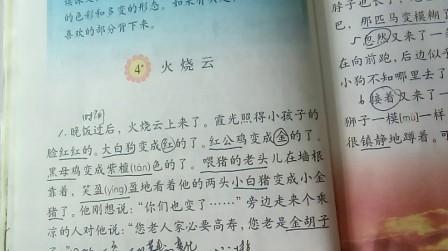 的色彩和多变的形态。如果有兴
喜欢的部分背下来。
4* 火烧云
时间
1.晚饭过后，火烧云上来了。霞光照得小孩子的
脸红红的。大白狗变成红的了。红公鸡变成金的了。
黑母鸡变成紫檀(tán)色的了。喂猪的老头儿在墙根
靠着，笑盈(yíng)盈地看着他的两头小白猪变成小金
猪了。他刚想说：“你们也变了……”旁边走来个乘
凉的人对他说：“您老人家必要高寿，您老是金胡子
了。”
脖子也长了
巴，那匹马变模糊了
5忽然又来了一
在向前跑，后边似
小狗不知哪里去了
6接着又来了一
狮子一模(mú)一样
很镇静地蹲着。